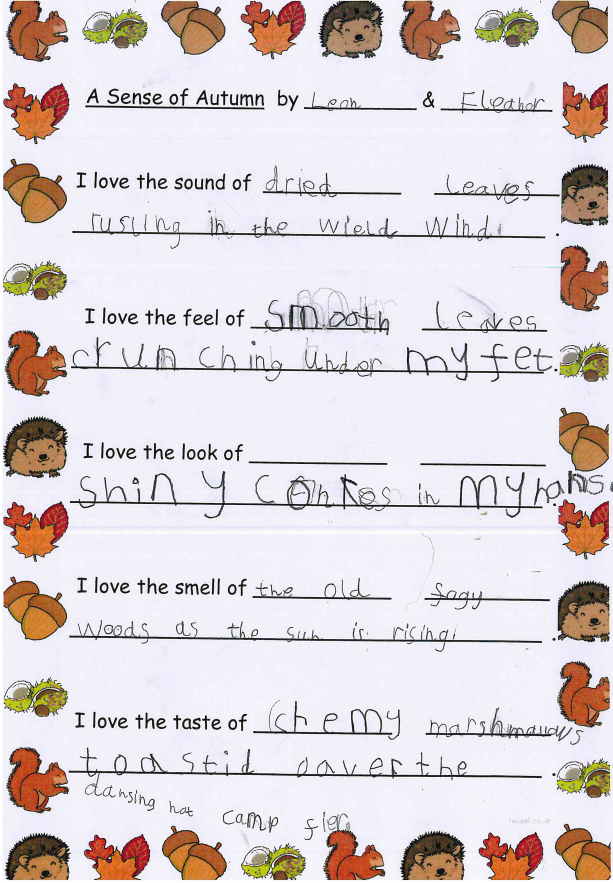 A Sense of Autumn by Leon & Eleanor
I love the sound of dried leaves
rusling in the wield wind.
I love the feel of smooth leaves
crunching under my fet.
I love the look of
Shiny conkes in my hans.
I love the smell of the old fogy
woods as the sun is rising.
I love the taste of chemy marshmallows
toastid oaver the
dansing hot camp fier.